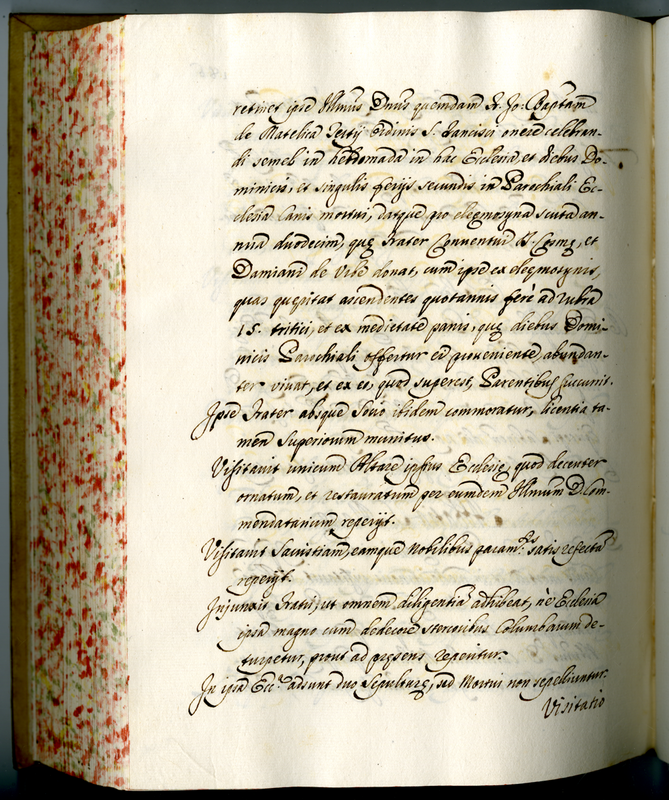 retinet ipse Illmus Dnus quemdam fr. Jo: Baptam
de Matelica Tertij Ordinis S. Francisci onere celebran-
di semel in hebdomada in hac Ecclesia, et diebus Do-
minicis, et singulis ferijs secundis in Parochiali Ec-
clesia Canis mortui, datque pro elegmosyna scuta an-
nua duodecim, quę frater Conventui S. Cosmę, et
Damiani de Urbe donat, cum ipse ex elegmosynis,
quas quęritat ascendentes quotannis ferè ad rubra
15. tritici, et ex medietate panis, quę diebus Domi-
nicis Parochiali offertur ei proveniente, abundan-
ter vivat, et ex eo, quod superest, Parentibus succurrit.
Ipse frater absque socio ibidem commoratur, licentia ta-
men Superiorum munitus.
Visitavit unicum Altare ipsius Ecclesię, quod decenter
ornatum, et restauratum per eumdem Illmum D. Com-
mendatarium reperijt.
Visitavit Sacristiam, eamque nobilibus param.tis satis refecta
reperijt.
Injunxit fratri, ut omnem diligentia adhibeat, nè Ecclesia
ipsa magno cum dedecore stercoribus Columbarum de-
turpetur, prout ad pręsens reperitur.
In ipsa Ecc.a adsunt duo Sepulturę, sed Mortui non sepeliuntur.
Visitatio